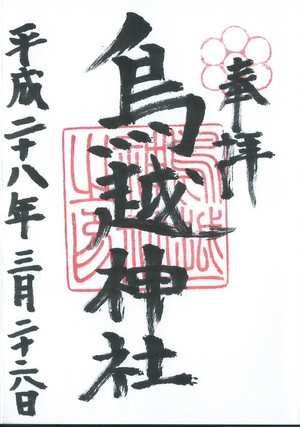 奉拝
鳥越神社
平成二十八年三月二十八日